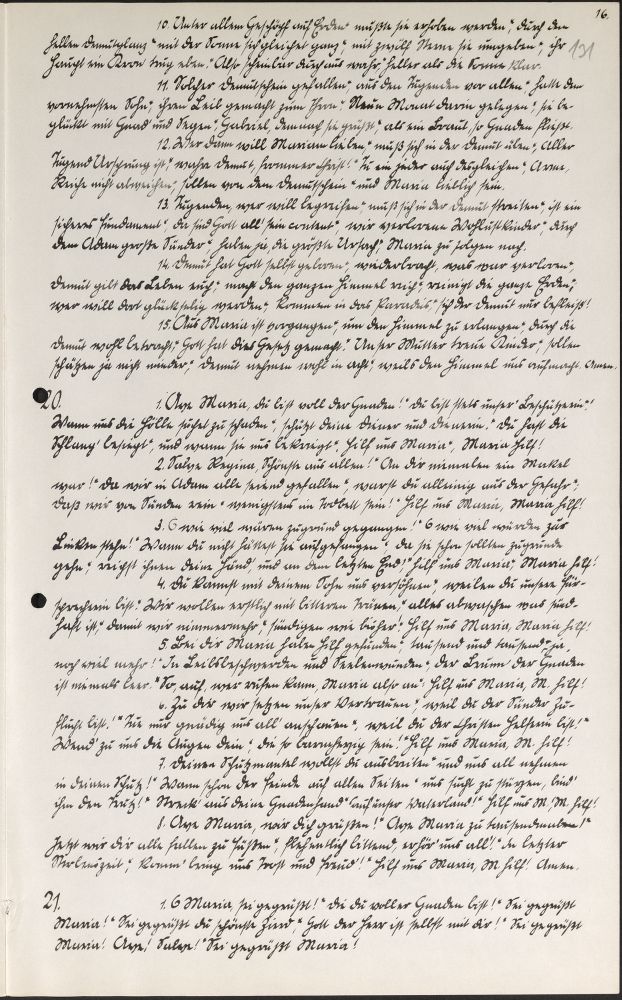 16.
131
10. Unter allem Geschöpf auf Erden" mußte sie erhoben werden", durch den
hellen Demutglanz" mit der Sonne sich gleichet ganz", mit zwölf Sterne sie umgeben", ihr
Haupt ein Kron' trug eben." Also scheinbar durchaus wahr" heller als die Sonne klar.
11. Solcher Demutschein gefallen", aus den Tugenden vor allen", hatte dem
vornehmsten Sohn", ihren Leib gemacht zum Thron". Neun Monat darin gelegen", sie be-
glückt mit Gnad' und Segen", Gabriel, demnach sie grüßt", als ein Braut, so Gnaden fließt.
12. Wer dann will Mariam lieben", muß sich in der Demut üben", Aller
Tugend Ursprung ist", wahre Demut, frommer Christ!" Tu ein jeder auch desgleichen", Arme,
Reiche nicht abweichen", sollen von dem Demutschein" und Maria lieblich sein.
13. Tugenden, wer will begreifen", muß sich in der Demut streiten", ist ein
sicheres Fundament", da sind Gott all' sein content", wir verlorene Wollustkinder", durch
dem Adam große Sünder", haben sie die größte Ursach", Maria zu folgen nach.
14. Demut hat Gott selbst geboren", wiederbracht, was war verloren",
Demut gibt das Leben euch", macht den ganzen Himmel reich", reinigt die ganze Erden",
wer will dort glückselig werden", kommen in das Paradies", sich der Demut nur befleiß!
15. Aus Maria ist gegangen", um den Himmel zu erlangen", durch die
Demut wohl betracht", Gott hat dies Gesetz gemacht." Unser Mutter treue Kinder", sollen
schätzen ja nicht minder", Demut nehmen wohl in acht", weils den Himmel uns aufmacht. Amen.
20. 1. Ave Maria, du bist voll der Gnaden!" du bist stets unser Beschützerin!"
Wann uns die Hölle suchet zu schaden", schütz deine Diener und Dienerin." Du hast die
Schlang' besiegt", und wann sie uns bekriegt" Hilf uns Maria", Maria hilf!
2. Salve Regina, Schönste aus allen!" An dir niemalen ein Makel
war!" Da wir in Adam alle seind gefallen", warst du alleinig aus der Gefahr",
daß wir von Sünden rein" wenigstens im Todbett sein!" Hilf uns Maria, Maria hilf!
3. O wie viel wären zugrund gegangen!" O wie viel würden zur
Linken stehn!" Wann du nicht hättest sie aufgefangen", da sie schon sollten zugrunde
gehn", reichst ihnen deine Hand", und an dem letzten End!" Hilf uns Maria, Maria hilf!
4. Du kannst mit deinem Sohn uns versöhnen", weilen du unsere Für-
sprecherin bist." Wir wollen erstlich mit bitteren Tränen", alles abwaschen was sünd-
haft ist", damit wir nimmermehr", sündigen wie bisher." Hilf uns Maria, Maria hilf!
5. Bei dir Maria haben Hilf gefunden", tausend und tausend, ja,
noch viel mehr!" In Leibsbeschwerden und Seelenwunden", der Brunn' der Gnaden
ist niemals leer." So, auf, wer rufen kann, Maria also an: Hilf uns Maria, M. hilf!
6. Zu dir wir setzen unser Vertrauen", weil du der Sünder Zu-
flucht bist." Tu nur gnädig uns all' anschauen", weil du der Christen Helferin bist!"
Wend' zu uns die Augen dein", die so barmherzig sein!" Hilf uns Maria, M. hilf!
7. Deinen Schutzmantel wollst du ausbreiten" und uns all nehmen
in deinen Schutz!" Wann schon der Feinde auf allen Seiten" uns sucht zu stürzen, biet'
ihm den Trutz!" Streck' aus deine Gnadenhand" auf unser Vaterland!" Hilf uns M, M. hilf!
8. Ave Maria, wir dich grüßen!" Ave Maria zu tausendmalen!"
Jetzt wir dir alle fallen zu Füßen", flehentlich bittend, erhör' uns all'!" In letzter
Sterbenszeit", komm' bring uns Trost und Freud'!" Hilf uns Maria, M hilf! Amen.
21. 1. O Maria, sei gegrüßt!" die du voller Gnaden bist!" Sei gegrüßt
Maria!" Sei gegrüßt du schönste Zierd", Gott der Herr ist selbst mit dir!" Sei gegrüßt
Maria! Ave! Salve!" Sei gegrüßt Maria!